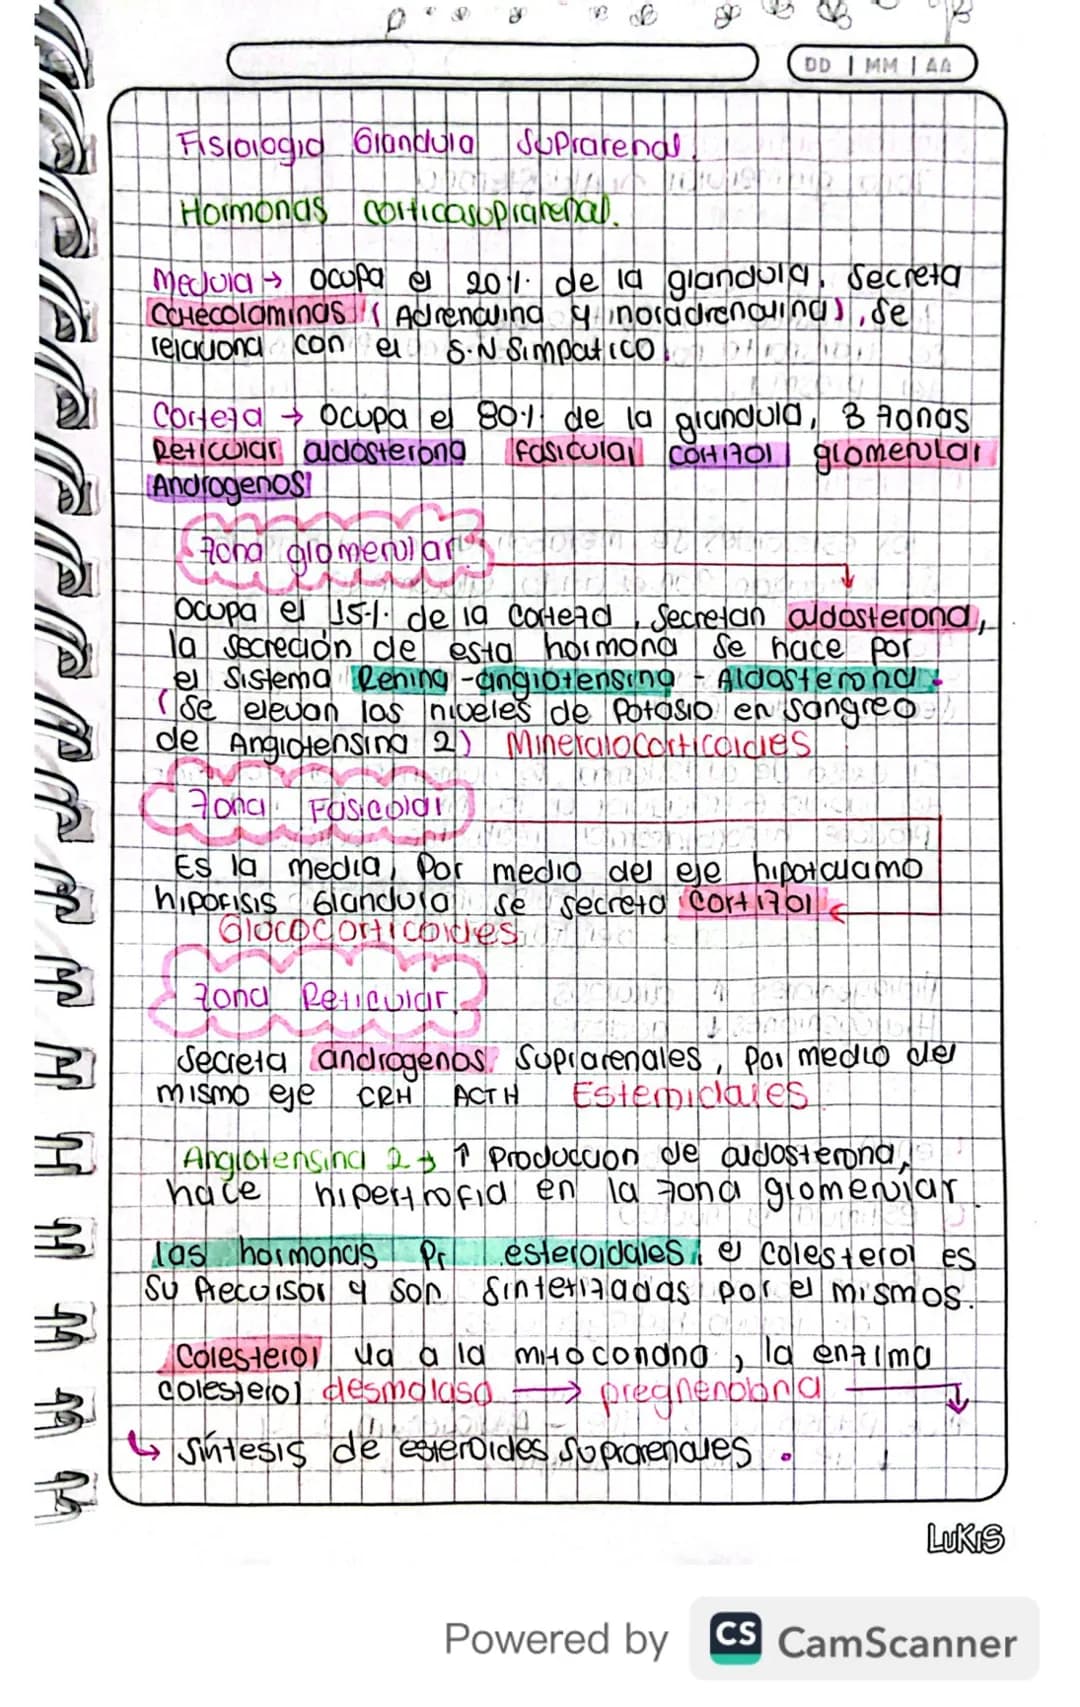 DD | MM | AA
Fisiologia Glandula Suprarenal.
Hormonas corticosuprarenal.
Medula → ocupa el 20% de la glandula, secreta
catecolaminas (Adrenalina y noradrenalina), se
relaciona con el S.N Simpatico.
Corteza → ocupa el 80% de la glandula, 3 zonas
Reticular aldosterona fasicular cortizol glomerular
Androgenos
Zona glomerular
ocupa el 15% de la corteza, Secretan aldosterona,
la secreción de esta hormona se hace por
el sistema Renina-angiotensina-Aldosterona.
(Se elevan los niveles de Potasio en sangre o
de Angiotensina 2) Mineralocorticoides
Zona Fasicular
Es la media, Por medio del eje hipotalamo
hipofisis Glandula se secreta Cortizol
Glucocorticoides
Zona Reticular.
Secreta androgenos Suprarenales, por medio del
mismo eje CRH ACTH Esteroidales.
Angiotensina 2 → ↑ Produccion de aldosterona,
hace hipertrofia en la zona glomerular.
las hormonas Pr esteroidales, el colesterol es
su Precursor y son sintetizadas por el mismos.
Colesterol va a la mitocondria, la enzima
colesterol desmolasa → pregnenolona →
↳ síntesis de esteroides suprarenales.
LuKiS
Powered by CS CamScanner